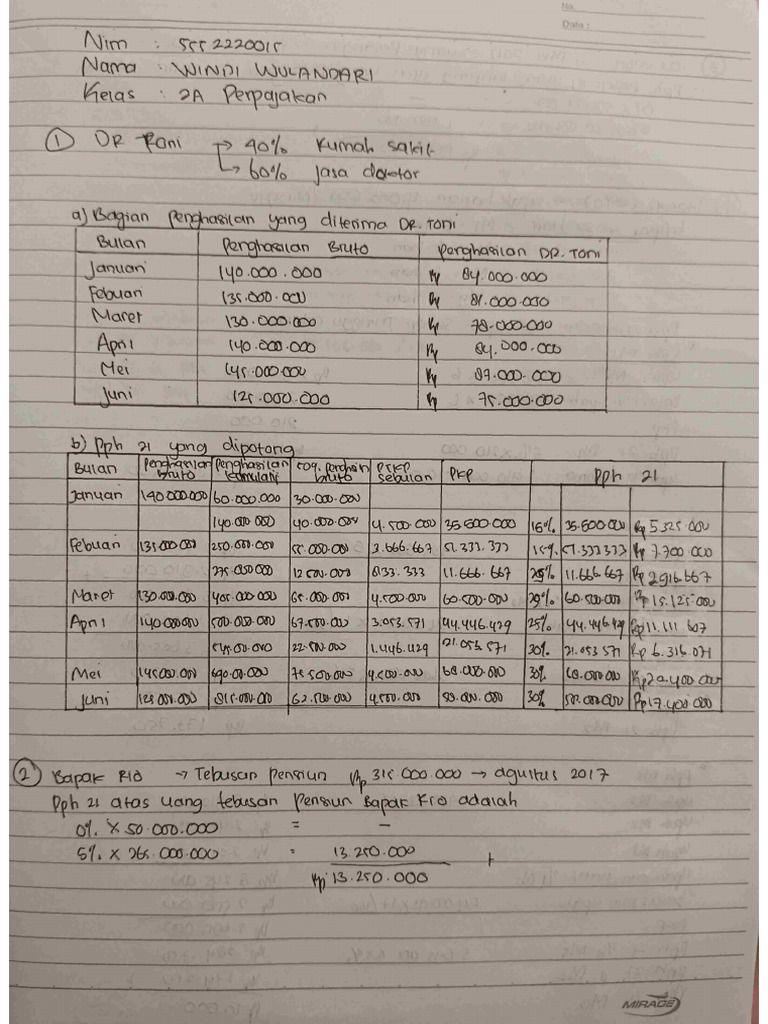 No.
Date :
Nim : 5552220015
Nama : WINDI WULANDARI
Kelas : 2A Perpajakan
① DR Roni → 40% Rumah sakit
↳ 60% Jasa doctor
a) Bagian penghasilan yang diterima DR. Toni
Bulan Penghasilan Bruto Penghasilan DR. Toni
Januari 140.000.000 Rp 84.000.000
Febuari 135.000.000 Rp 81.000.000
Maret 130.000.000 Rp 78.000.000
April 140.000.000 Rp 84.000.000
Mei 145.000.000 Rp 87.000.000
Juni 125.000.000 Rp 75.000.000
b) Pph 21 yang dipotong
Bulan Penghasilan Bruto Penghasilan kumulatif 50% penghasiln bruto PTKP sebulan PKP Pph 21
Januari 140.000.000 60.000.000 30.000.000
140.000.000 40.000.000 4.500.000 35.500.000 15% 35.500.000 Rp 5.325.000
Febuari 135.000.000 250.000.000 55.000.000 3.666.667 51.333.333 15% 51.333.333 Rp 7.700.000
275.000.000 12.500.000 833.333 11.666.667 25% 11.666.667 Rp 2.916.667
Maret 130.000.000 405.000.000 65.000.000 4.500.000 60.500.000 25% 60.500.000 Rp 15.125.000
April 140.000.000 500.000.000 67.500.000 3.053.571 44.446.429 25% 44.446.429 Rp 11.111.607
545.000.000 22.500.000 1.446.429 21.053.571 30% 21.053.571 Rp 6.316.071
Mei 145.000.000 690.000.000 72.500.000 4.500.000 68.000.000 30% 68.000.000 Rp 20.400.000
Juni 125.000.000 815.000.000 62.500.000 4.500.000 58.000.000 30% 58.000.000 Rp 17.400.000
② Bapak Rio → Tebusan pensiun Rp 315.000.000 → agustus 2017
Pph 21 atas uang tebusan pensiun Bapak Rio adalah
0% × 50.000.000 = –
5% × 265.000.000 = 13.250.000 +
Rp 13.250.000
MIRAGE